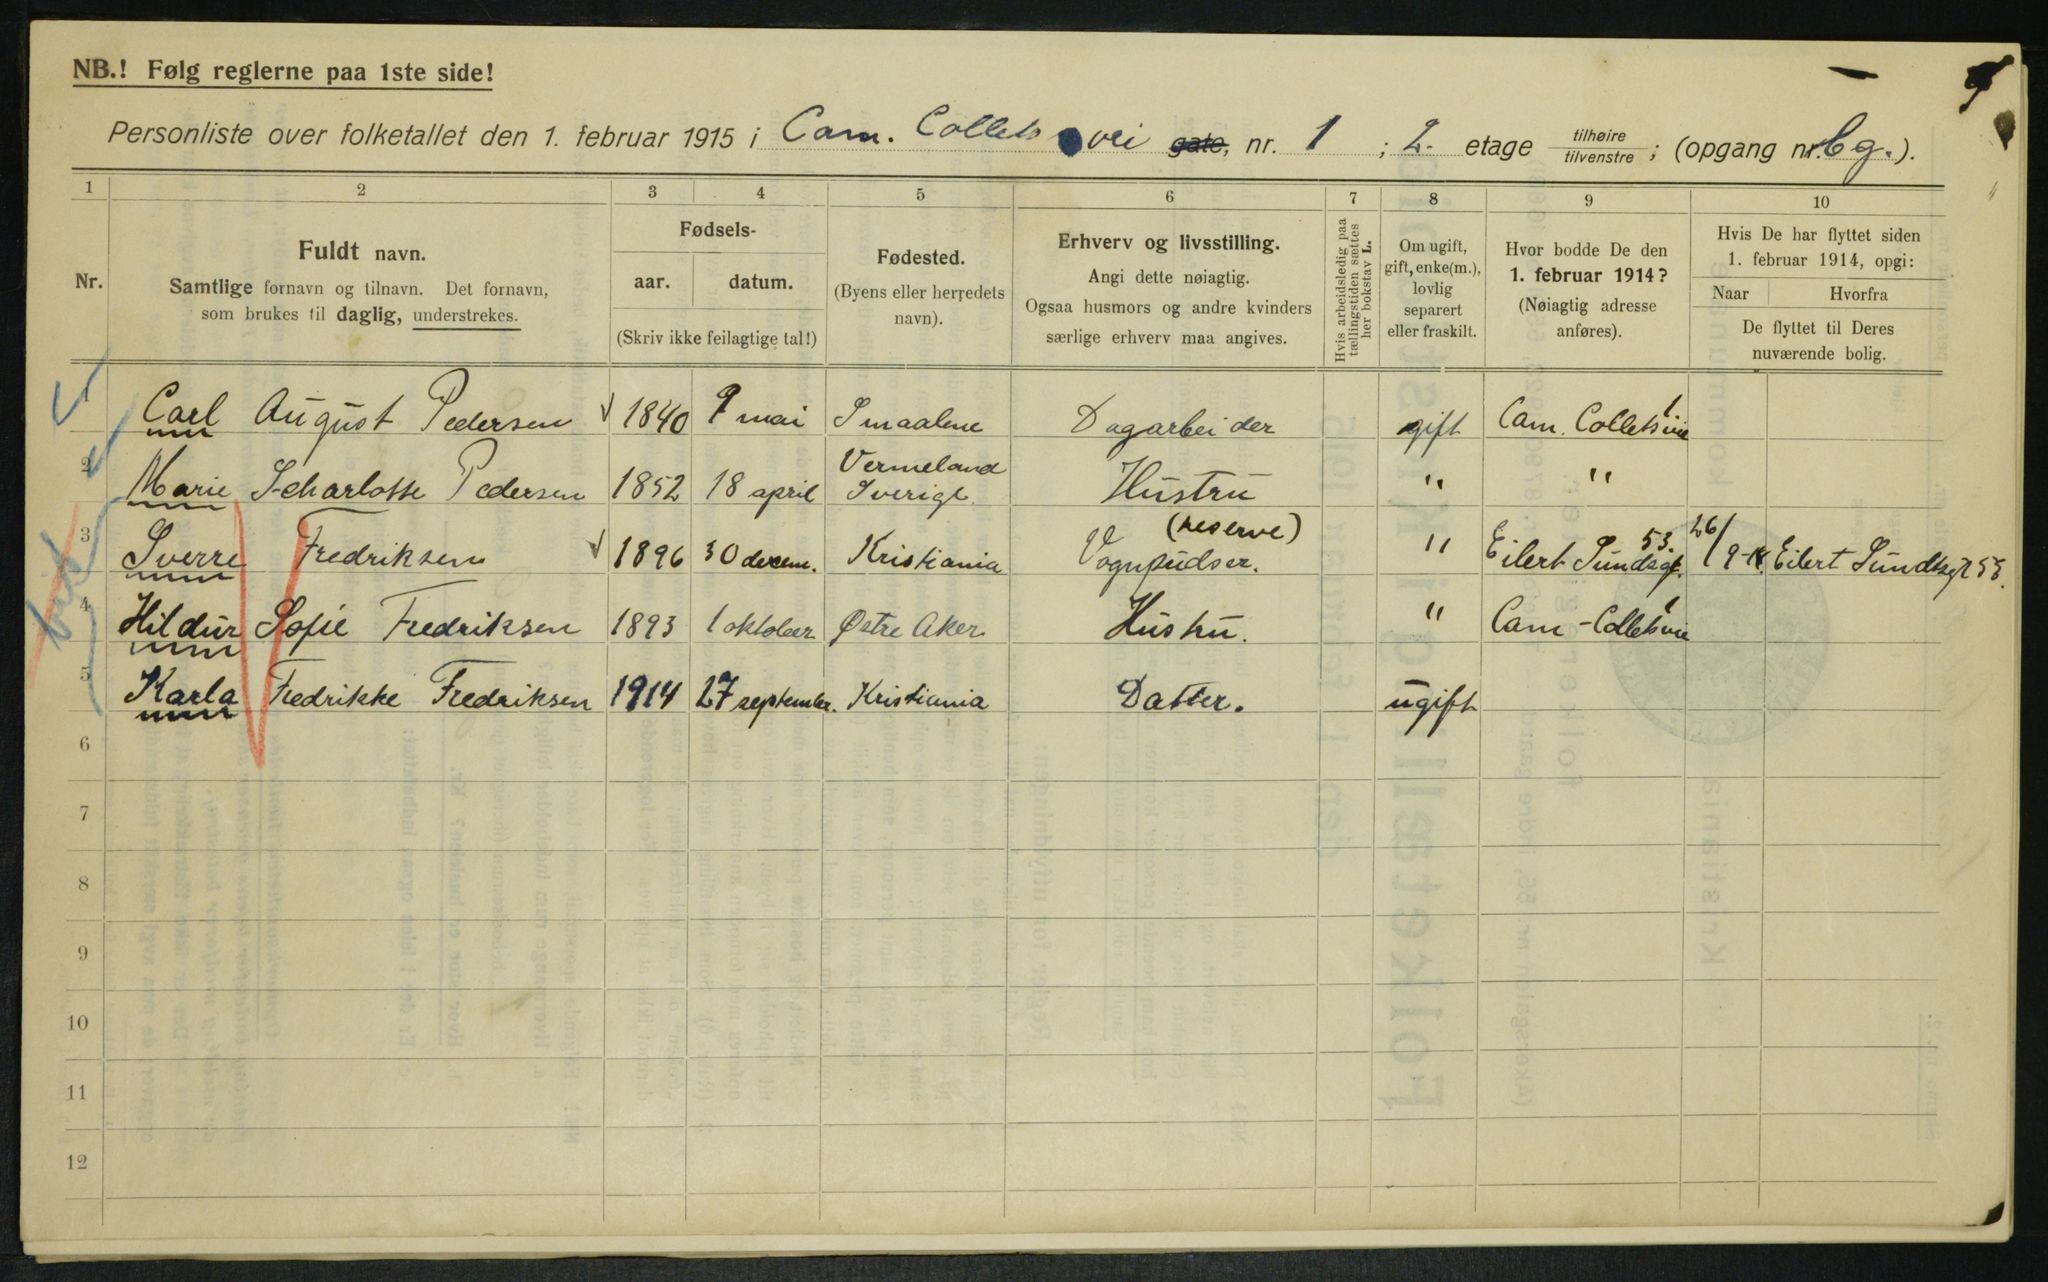 NB.! Følg reglerne paa 1ste side!
Personliste over folketallet den 1. februar 1915 i Cam. Collets vei gate, nr. 1 ; 2. etage tilhøire tilvenstre ; (opgang nr. Cg.).
1 2 3 4 5 6 7 8 9 10
Nr.
Fuldt navn.
Samtlige fornavn og tilnavn. Det fornavn,
som brukes til daglig, understrekes.
Fødsels-
aar. datum.
(Skriv ikke feilagtige tal!)
Fødested.
(Byens eller herredets
navn).
Erhverv og livsstilling.
Angi dette nøiagtig.
Ogsaa husmors og andre kvinders
særlige erhverv maa angives.
Hvis arbeidsledig paa
tællingstiden sættes
her bokstav L.
Om ugift,
gift, enke(m.),
lovlig
separert
eller fraskilt.
Hvor bodde De den
1. februar 1914?
(Nøiagtig adresse
anføres).
Hvis De har flyttet siden
1. februar 1914, opgi:
Naar Hvorfra
De flyttet til Deres
nuværende bolig.
1 Carl August Pedersen 1840 9 mai Smaalene Dagarbeider gift Cam. Colletsvie 1
2 Marie Scharlotte Pedersen 1852 18 april Vermeland Sverige Hustru " "
3 Sverre Fredriksen 1896 30 decem. Kristiania Vognpudser. (reserve) " Eilert Sundsgt. 53. 26/9-14. Eilert Sundtsgt 53.
4 Hildur Sofie Fredriksen 1893 1 oktober Østre Aker Hustru. " Cam-Colletsvie 1
5 Karla Fredrikke Fredriksen 1914 27 september. Kristiania Datter. ugift
6
7
8
9
10
11
12